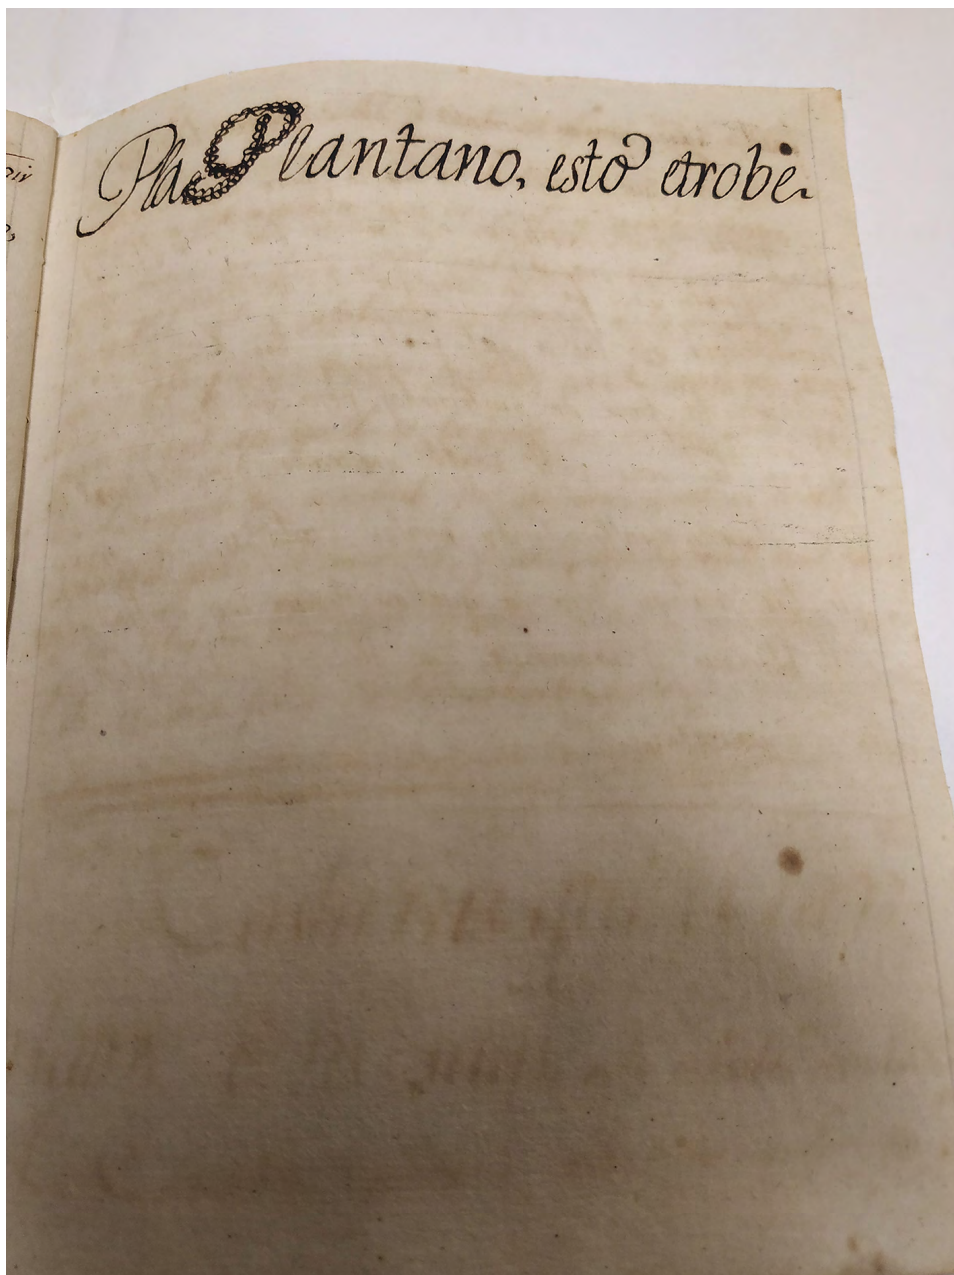 Pla Plantano, esto etrobe.